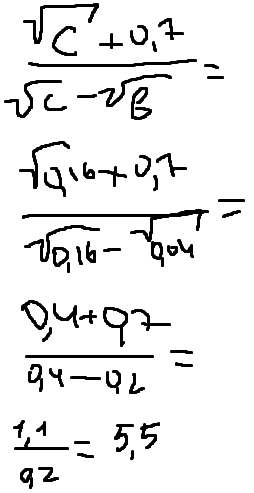 √C + 0,7
√C − √B =
√0,16 + 0,7
√0,16 − √0,04 =
0,4 + 0,7
0,4 − 0,2 =
1,1
0,2 = 5,5